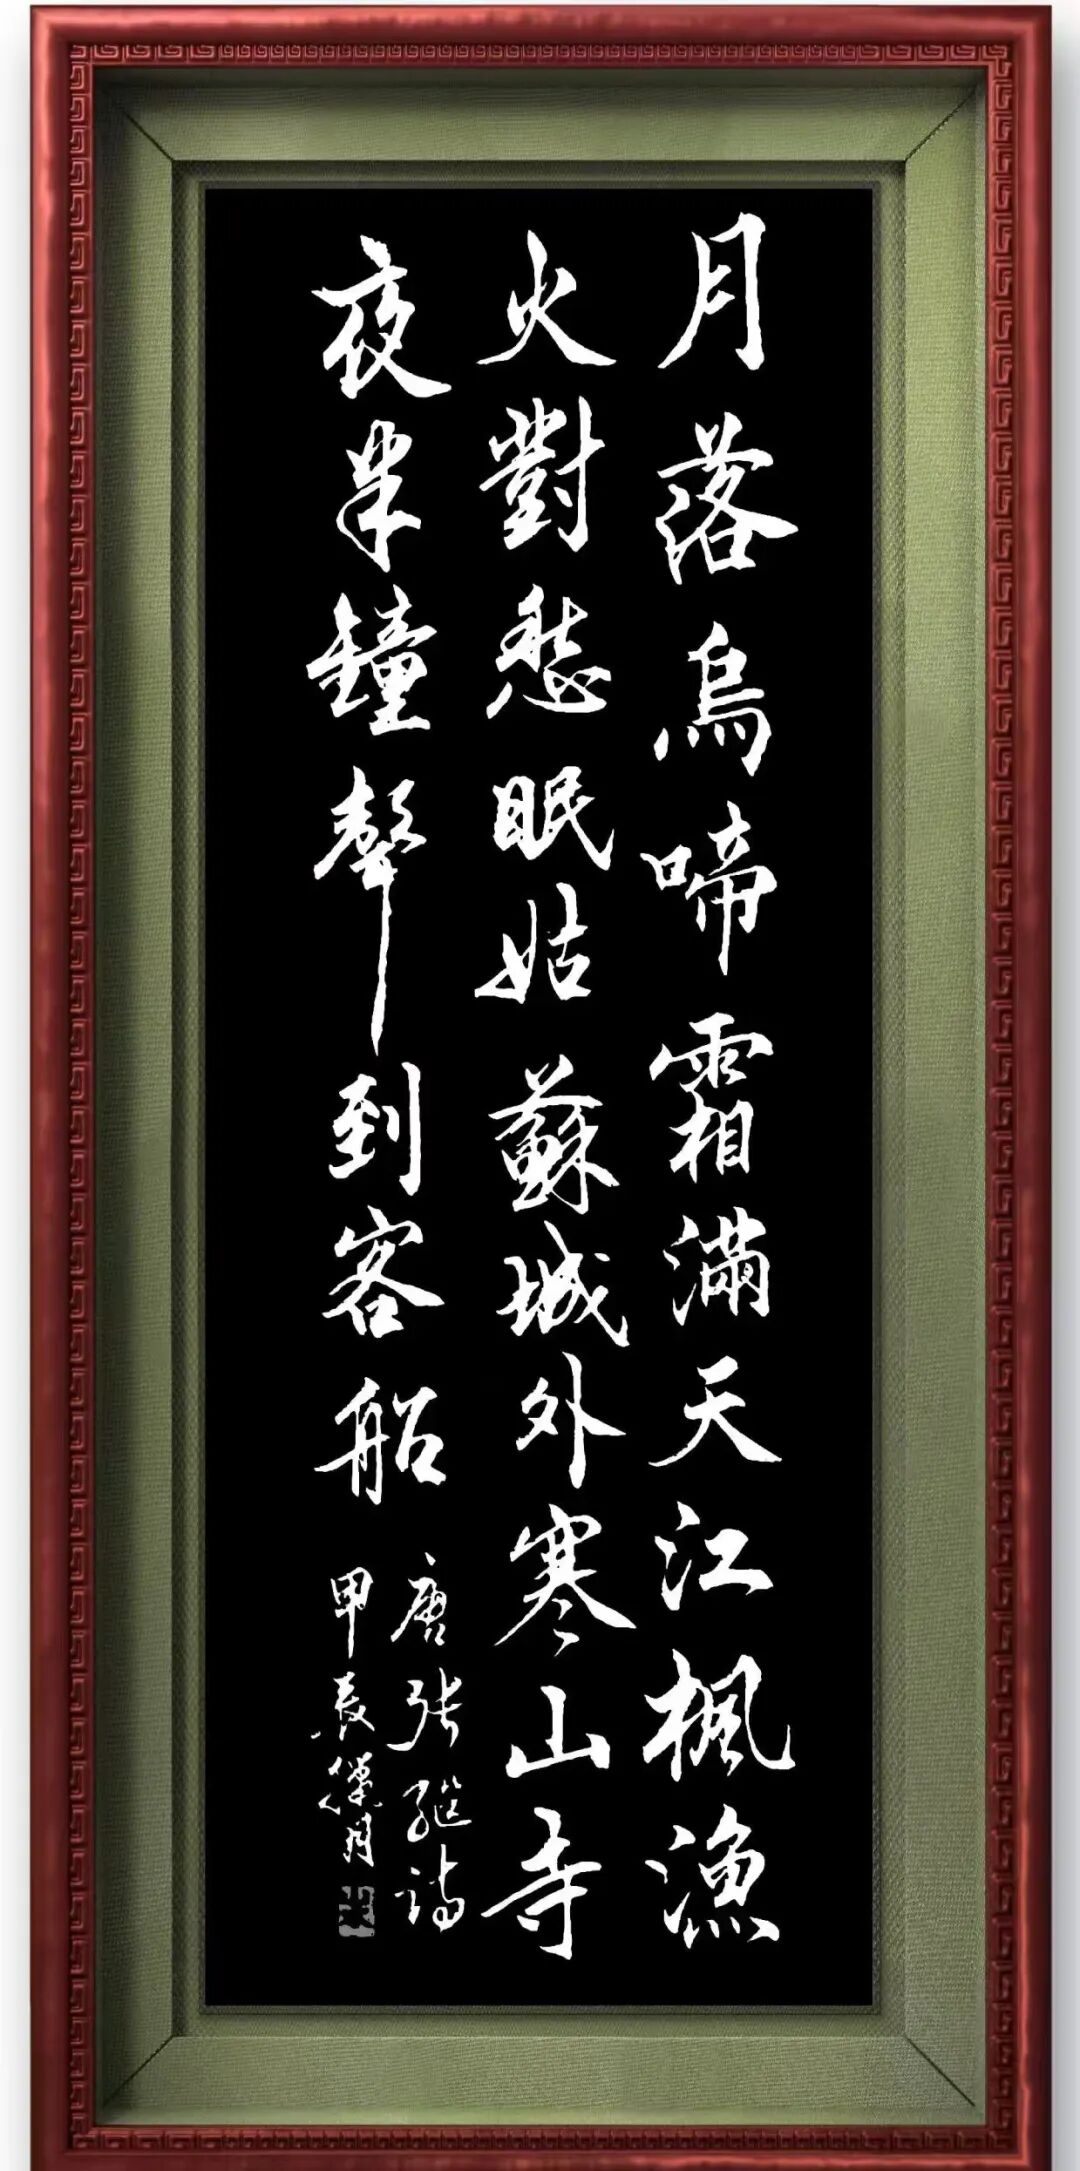 月落烏啼霜滿天江楓漁
火對愁眠姑蘇城外寒山寺
夜半鐘聲到客船
唐張継詩
甲辰